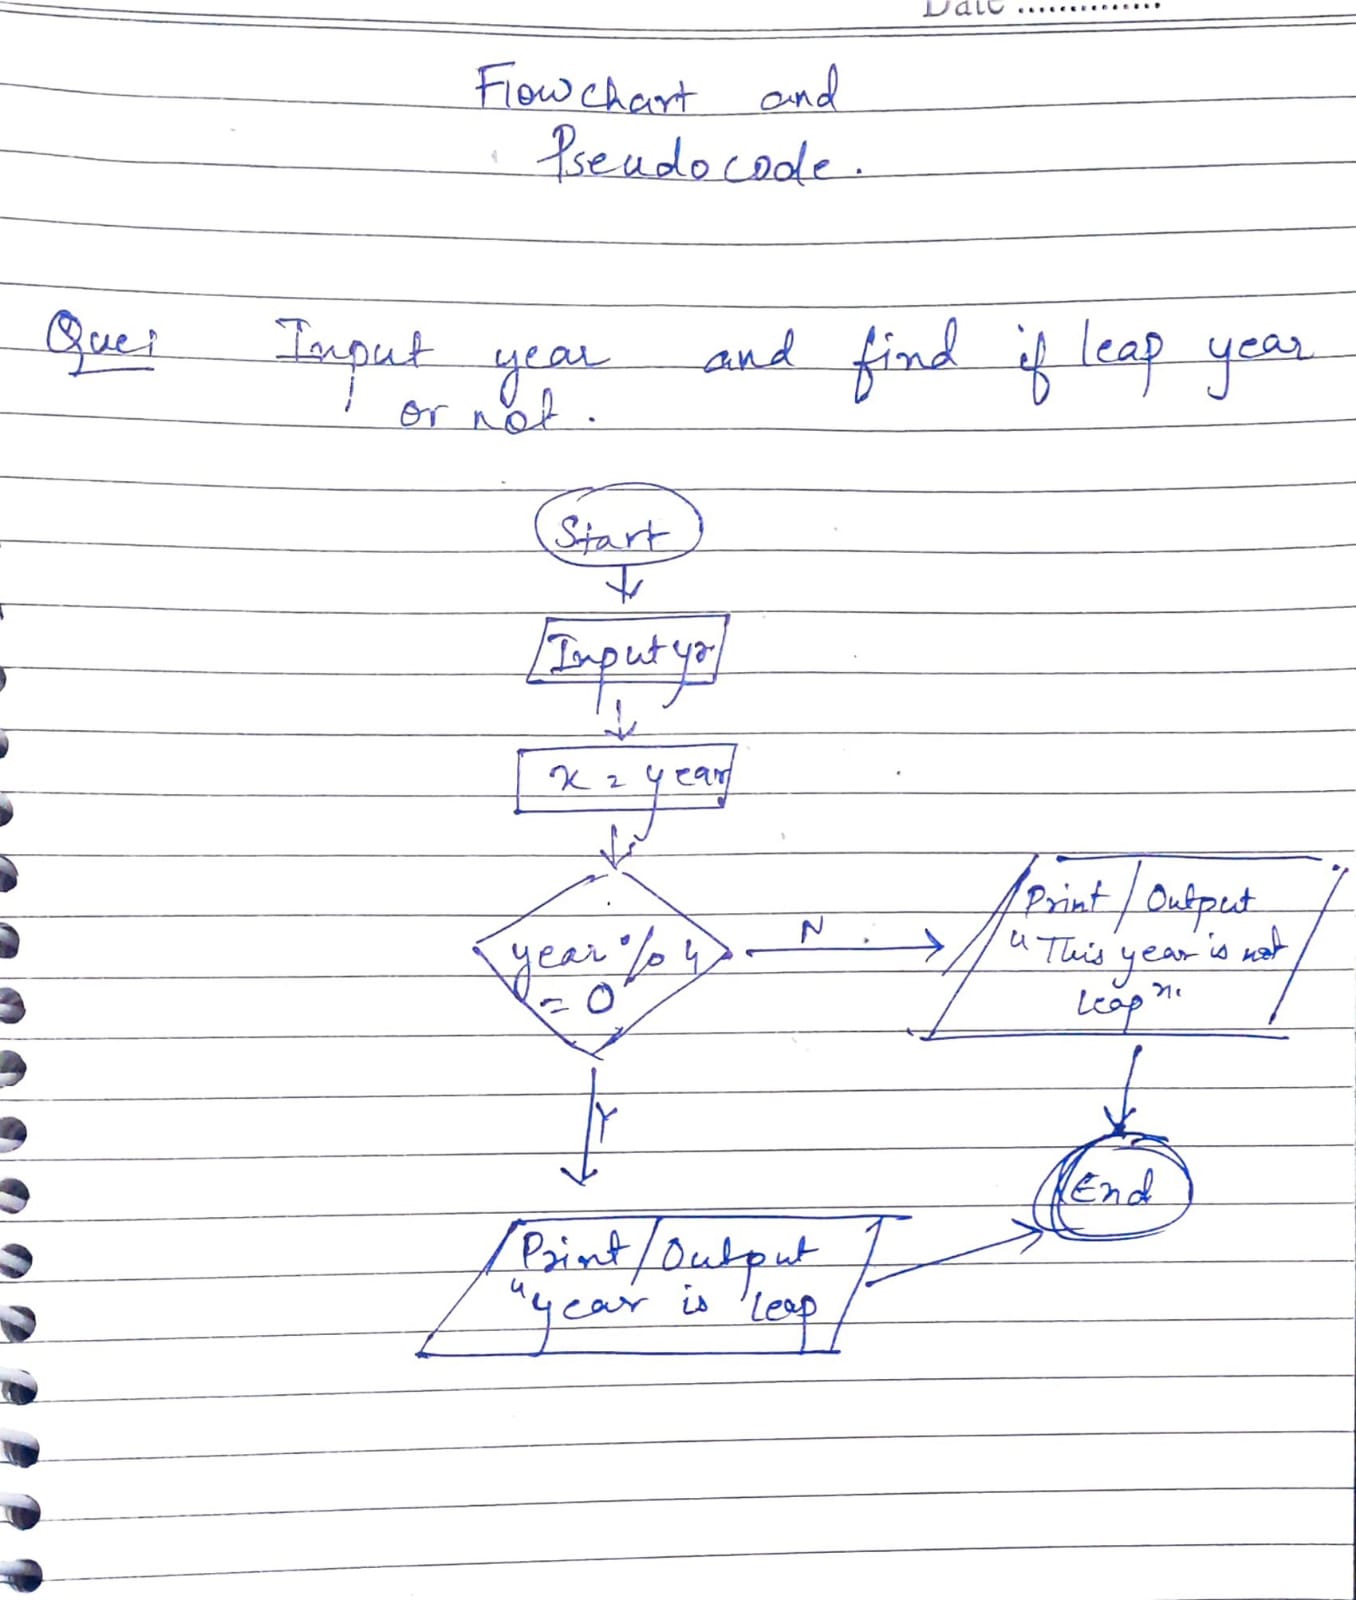 Date ..............
Flowchart and
Pseudocode.
Que:
Input year and find if leap year
or not.
Start
Input yr
x = year
year % 4
= 0
N
Print / Output
"This year is not
leap".
Y
End
Print / Output
"year is leap